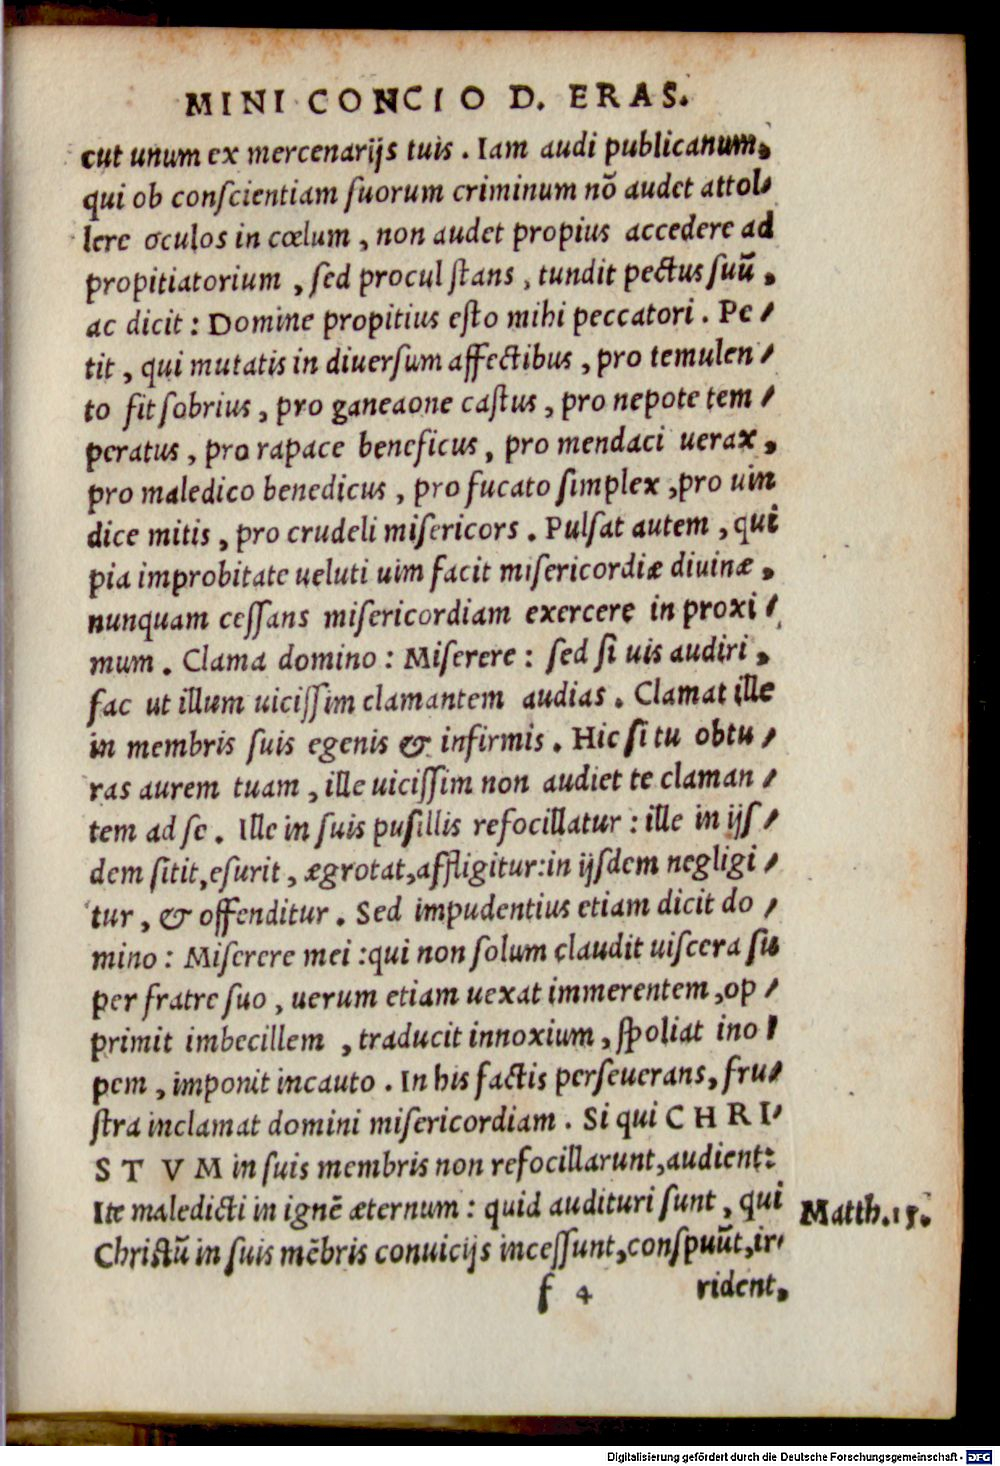 MINI CONCIO D. ERAS.
cut unum ex mercenarijs tuis. Iam audi publicanum,
qui ob conſcientiam ſuorum criminum nõ audet attol-
lere oculos in cœlum, non audet propius accedere ad
propitiatorium, ſed procul ſtans, tundit pectus ſuũ,
ac dicit: Domine propitius eſto mihi peccatori. Pe-
tit, qui mutatis in diuerſum affectibus, pro temulen-
to fit ſobrius, pro ganeaone caſtus, pro nepote tem-
peratus, pro rapace beneficus, pro mendaci uerax,
pro maledico benedicus, pro fucato ſimplex, pro uin
dice mitis, pro crudeli miſericors. Pulſat autem, qui
pia improbitate ueluti uim facit miſericordiæ diuinæ,
nunquam ceſſans miſericordiam exercere in proxi-
mum. Clama domino: Miſerere: ſed ſi uis audiri,
fac ut illum uiciſſim clamantem audias. Clamat ille
in membris ſuis egenis & infirmis. Hic ſi tu obtu-
ras aurem tuam, ille uiciſſim non audiet te claman-
tem ad ſe. Ille in ſuis puſillis refocillatur: ille in ijſ-
dem ſitit, eſurit, ægrotat, affligitur: in ijſdem negligi-
tur, & offenditur. Sed impudentius etiam dicit do-
mino: Miſerere mei: qui non ſolum claudit uiſcera ſu
per fratre ſuo, uerum etiam uexat immerentem, op-
primit imbecillem, traducit innoxium, ſpoliat ino-
pem, imponit incauto. In his factis perſeuerans, fru-
ſtra inclamat domini miſericordiam. Si qui CHRI-
STVM in ſuis membris non refocillarunt, audient:
Ite maledicti in ignẽ æternum: quid audituri ſunt, qui
Matth.15.
Chriſtũ in ſuis mẽbris conuicijs inceſſunt, conſpuũt, ir-
f 4 rident,
Digitalisierung gefördert durch die Deutsche Forschungsgemeinschaft - DFG